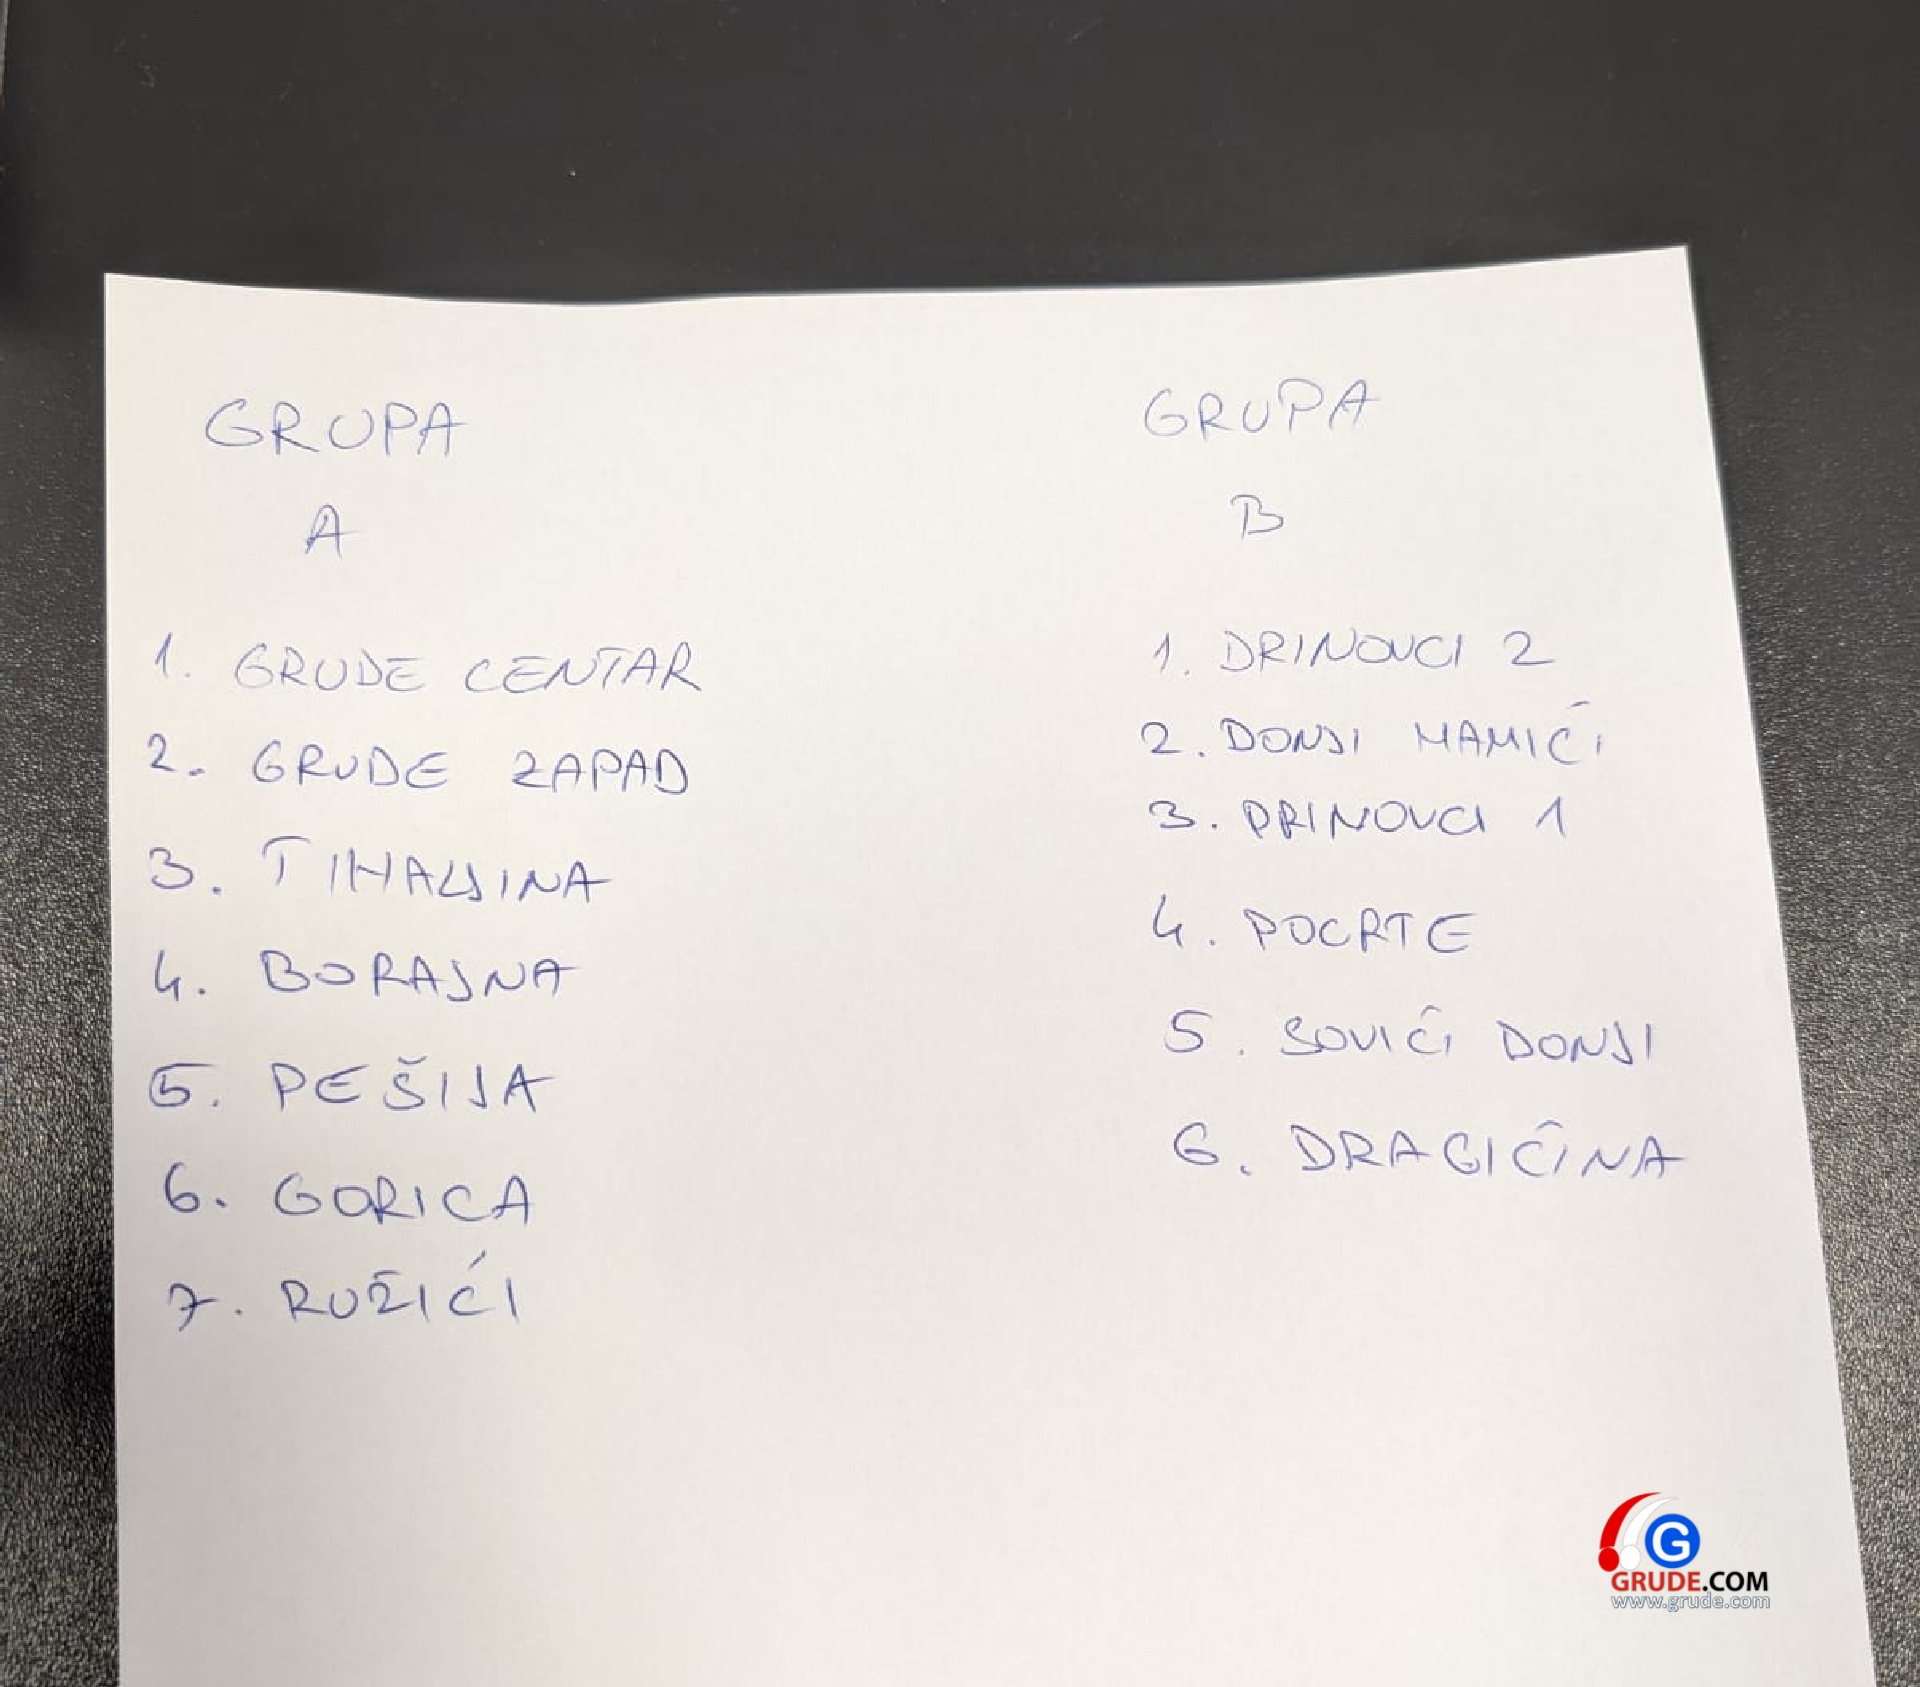 GRUPA
A
1. GRUDE CENTAR
2. GRUDE ZAPAD
3. TIHALJINA
4. BORAJNA
5. PEŠIJA
6. GORICA
7. RUŽIĆI
GRUPA
B
1. DRINOVCI 2
2. DONJI MAMIĆI
3. DRINOVCI 1
4. POCRTE
5. SOVIĆI DONJI
6. DRAGIĆINA
G
GRUDE.COM
www.grude.com